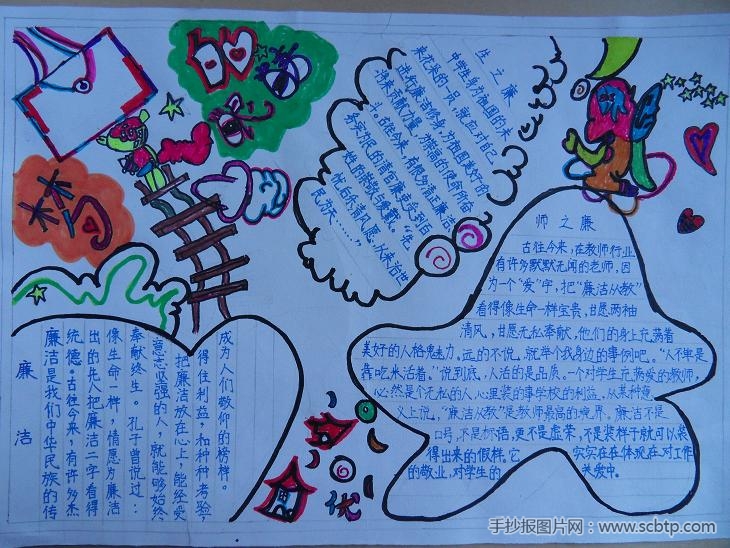 生之廉
中学生身为祖国的未
来花朵的一员，就应对自己
进行廉洁修身，为祖国美好的
将来贡献力量，为崇高的使命而奋
斗。古往今来，有很多清正廉洁
务实为民的清官廉吏受到百
姓的崇敬与爱戴。“先
忧后乐清风愿，从来治世
民为天……”
师之廉
古往今来，在教师行业
有许多默默无闻的老师，因
为一个“爱”字，把“廉洁从教”
看得像生命一样宝贵，甘愿两袖
清风，甘愿无私奉献，他们的身上充满着
美好的人格魅力。远的不说，就举个我身边的事例吧。“人不单是
靠吃米活着。”说到底，人活的是品质。一个对学生充满爱的教师，
必然是个无私的人，心里装的事学校的利益。从某种意
义上说，“廉洁从教”是教师最高的境界。廉洁不是
口号，不是标语，更不是虚荣，不是装样子就可以装
得出来的假样。它 实实在在体现在对工作
的敬业，对学生的 关爱中。
廉洁
廉洁是我们中华民族的传
统德。古往今来，有许多杰
出的先人把廉洁二字看得
像生命一样，情愿为廉洁
奉献终生。孔子曾说过：
意志坚强的人，就能够始终
把廉洁放在心上，能经受
得住利益，和种种考验，
成为人们敬仰的榜样。
优
手抄报图片网：www.scbtp.com